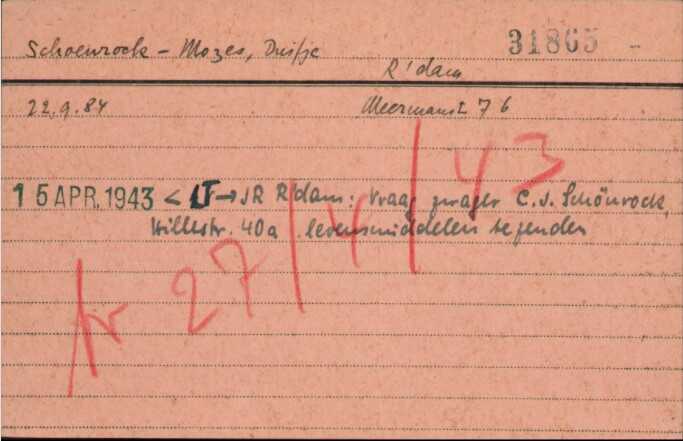 Schoenrock - Mozes, Duifje
31865 -
R'dam
22.9.84
Meermanst 76
15 APR. 1943 < LT → JR R'dam: Vraag zwager C.J. Schönrock,
Hillestr. 40a levensmiddelen te zenden
tr 27/4/43